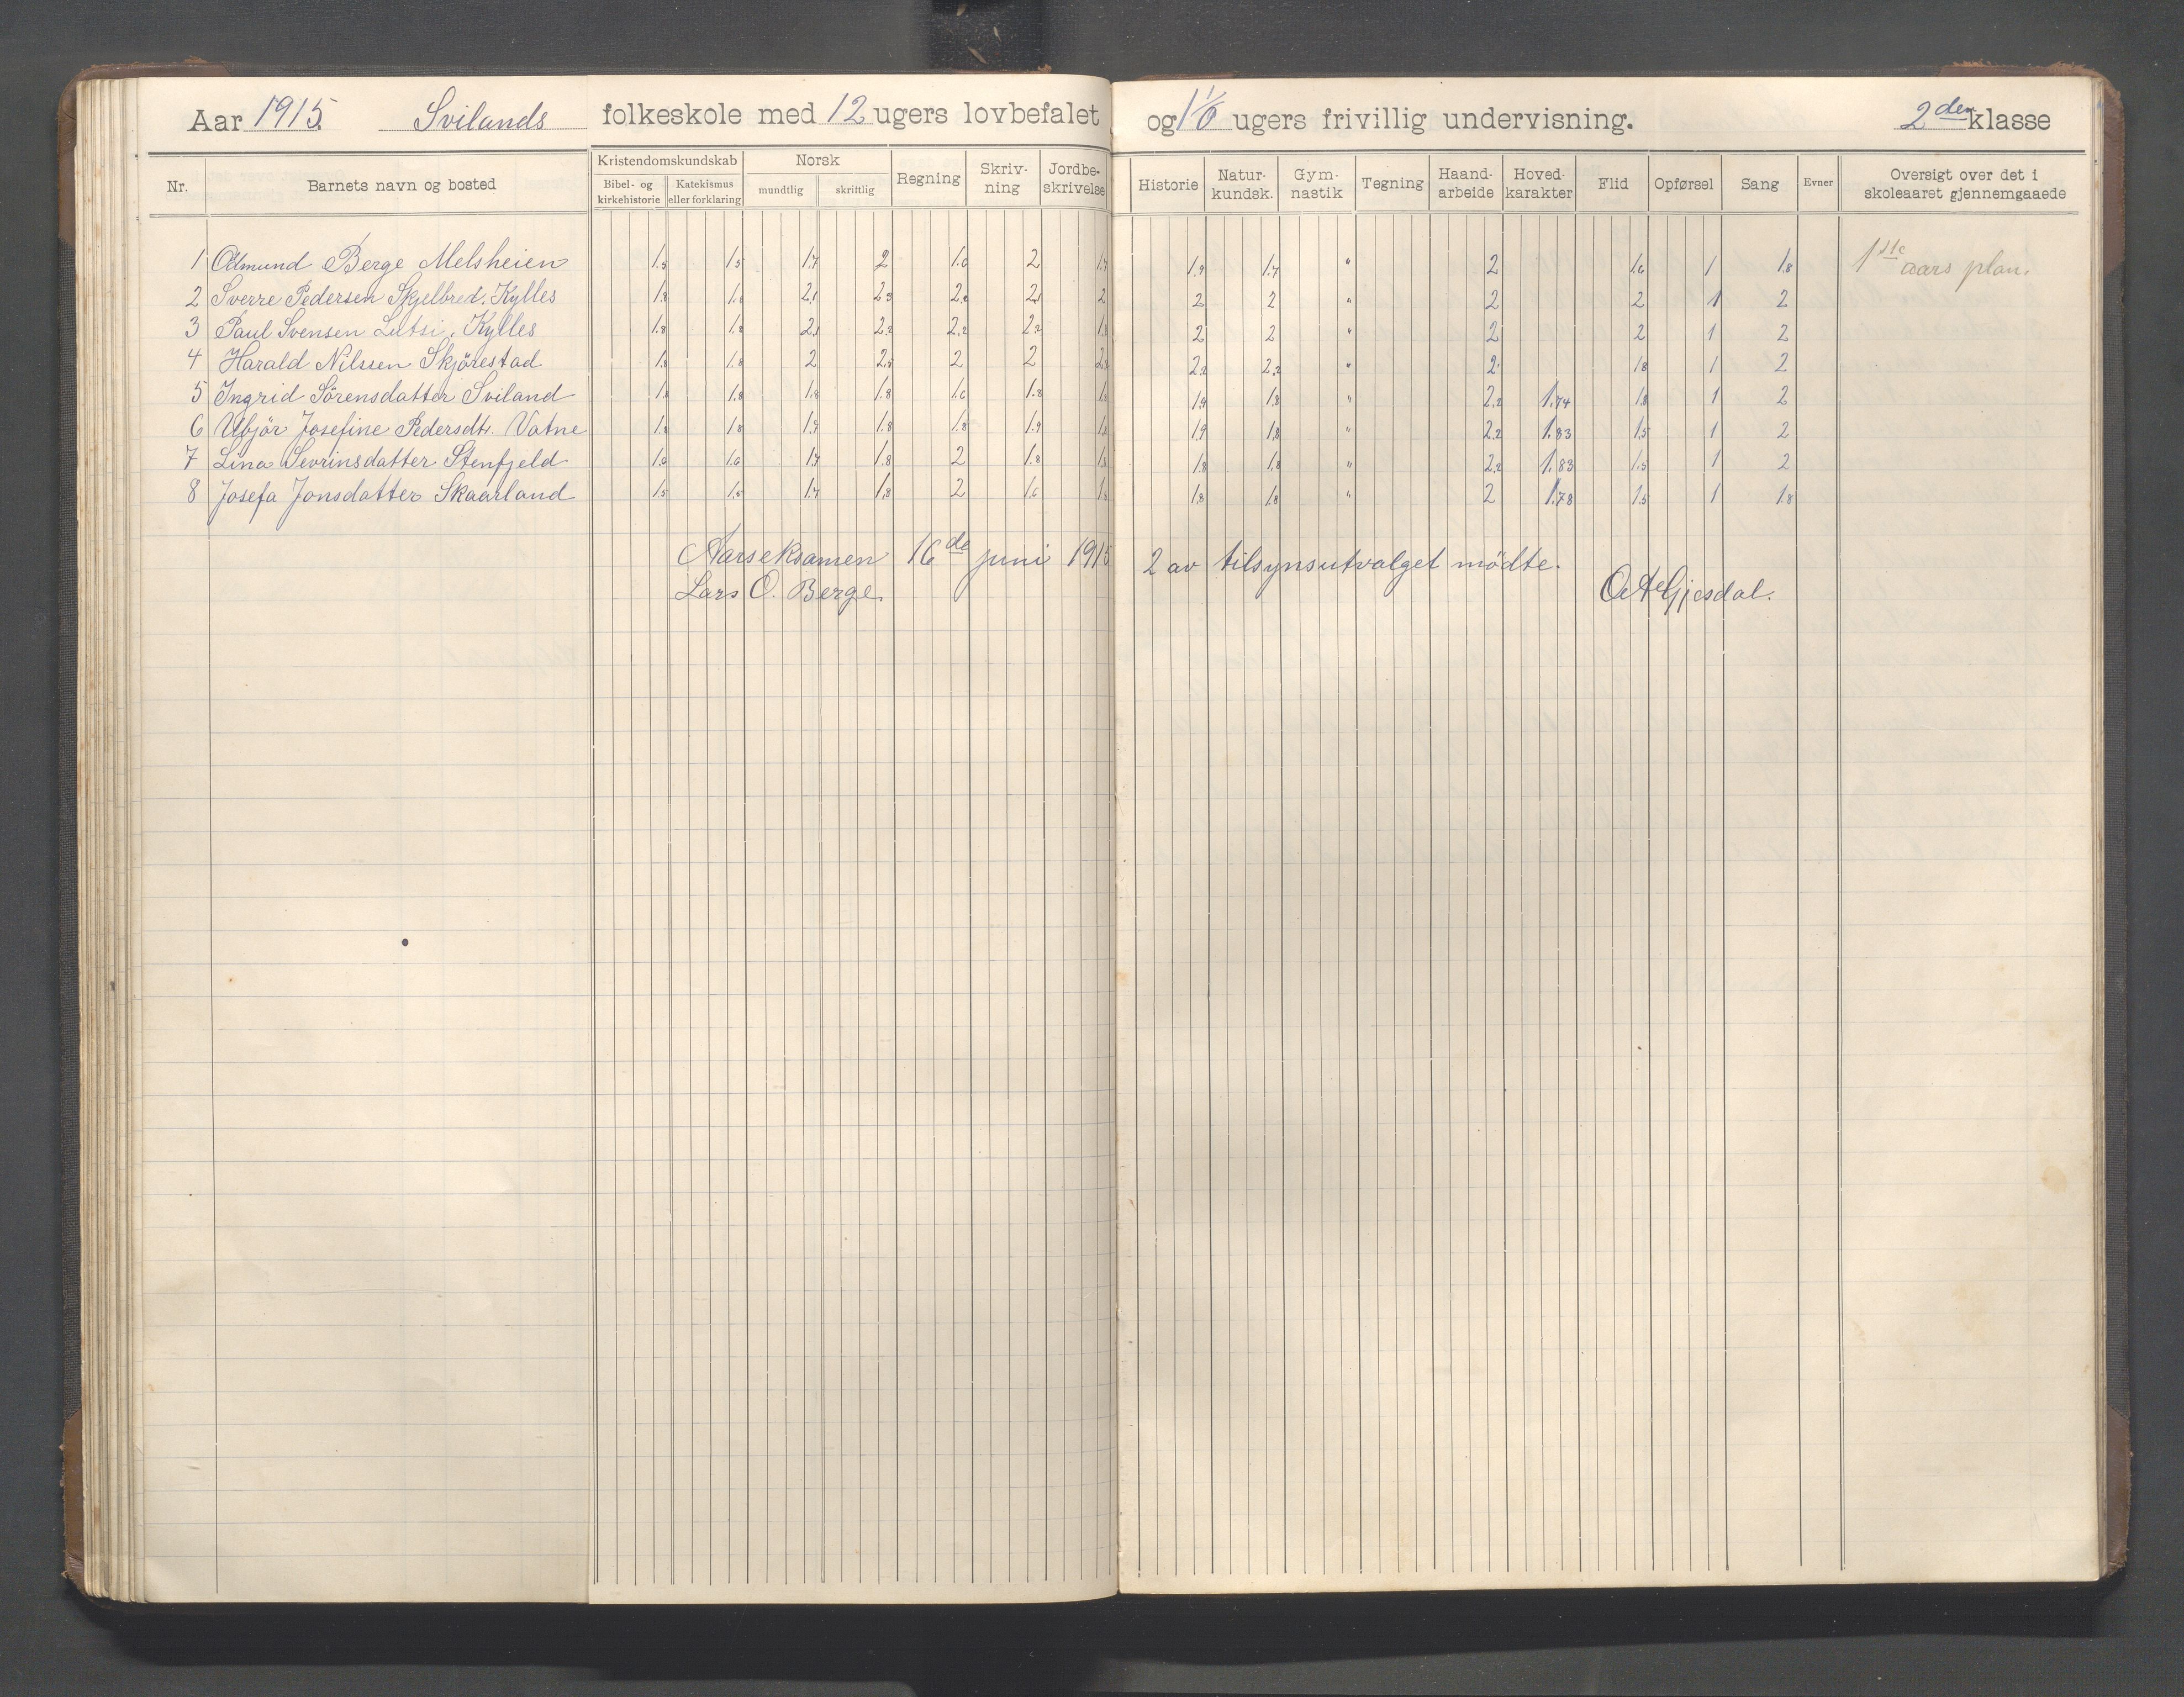 Aar 1915. Svilands folkeskole med 12 ugers lovbefalet og ugers frivillig undervisning. 2den klasse
Nr. Barnets navn og bosted Kristendomskundskab Norsk Regning Skriv-ning Jordbe-skrivelse Historie Natur-kundsk. Gym-nastik Tegning Haand-arbeide Hoved-karakter Flid Opførsel Sang Evner Oversigt over det i skoleaaret gjennemgaaede
Bibel- og kirkehistorie Katekismus eller forklaring mundtlig skriftlig
1 Odmund Berge Melsheien 1.5 1.5 1.7 2 1.6 2 1.7 1.9 1.7 " 2 1.6 1 1.8 1ste aars plan.
2 Sverre Pedersen Skjelbred. Kylles 1.8 2.1 2 2 2 " 2 2 1 2
3 Paul Svensen Lutsi. Kylles 1.8 1.8 2.1 2.2 2.2 2.2 1.8 2 2 " 2 2 1 2
4 Harald Nilssen Skjörestad 1.8 1.8 2 2 2 2.2 2.2 " 2 1.8 1 2
5 Ingrid Sörensdatter Sviland 1.8 1.8 1.8 1.6 1.8 1.9 1.8 " 2.2 1.74 1.8 1 2
6 Josefine Pedersdtr. Vatne 1.8 1.8 1.9 1.8 1.8 1.9 1.9 1.8 " 2.2 1.83 1.5 1 2
7 Lina Sevrinsdatter Stenfjeld 1.6 1.6 1.7 1.8 2 1.8 1.8 1.8 " 2.2 1.83 1.5 1 2
8 Josefa Jonsdatter Skaarland 1.5 1.5 1.7 1.8 2 1.6 1.8 1.8 " 2 1.78 1.5 1 1.8
Aarseksamen 16de juni 1915 2 av tilsynsutvalget mödte.
Lars O. Berge. O A Gjesdal.